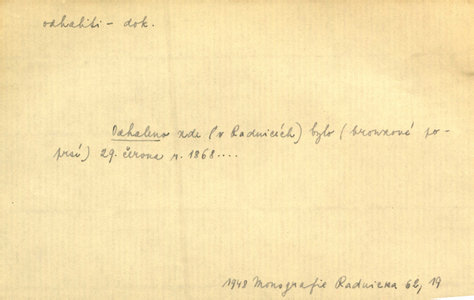 odhaliti - dok.
Odhaleno zde (v Radnicích) bylo (bronzové po-
prsí) 29. června r. 1868....
1948 Monografie Radnicka 62, 19